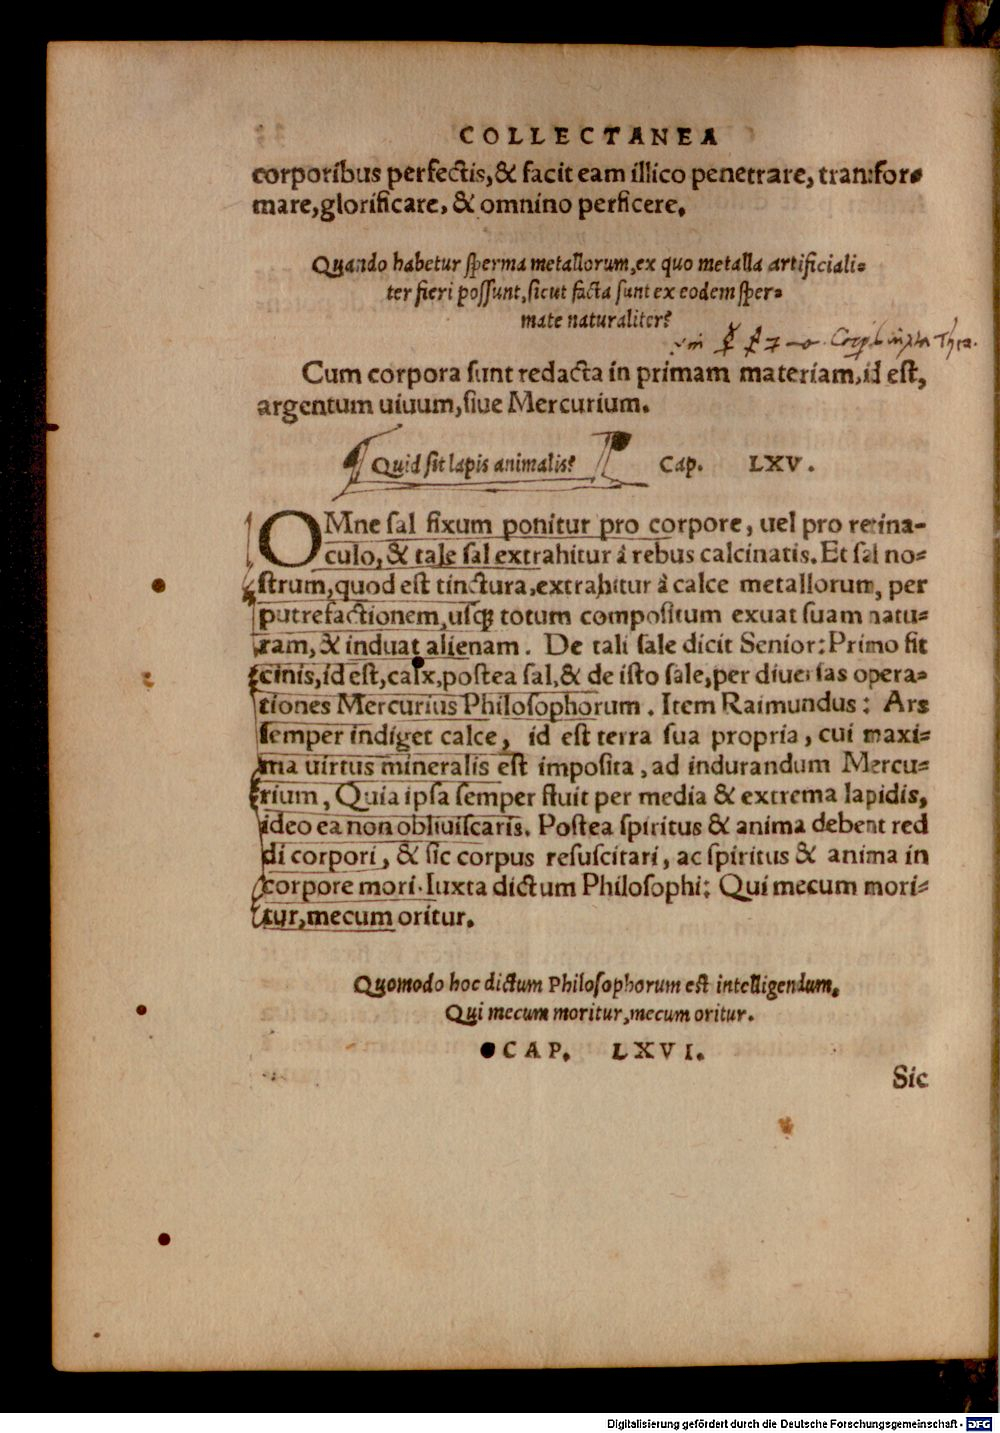 COLLECTANEA
corporibus perfectis, & facit eam illico penetrare, transfor=
mare, glorificare, & omnino perficere.
Quando habetur sperma metallorum, ex quo metalla artificiali=
ter fieri possunt, sicut facta sunt ex eodem sper=
mate naturaliter?
Cum corpora sunt redacta in primam materiam, id est,
argentum uiuum, siue Mercurium.
Quid sit lapis animalis? Cap. LXV.
OMne sal fixum ponitur pro corpore, uel pro retina-
culo, & tale sal extrahitur à rebus calcinatis. Et sal no=
strum, quod est tinctura, extrahitur à calce metallorum, per
putrefactionem, usq; totum compositum exuat suam natu=
ram, & induat alienam. De tali sale dicit Senior: Primo fit
cinis, id est, calx, postea sal, & de isto sale, per diuersas opera=
tiones Mercurius Philosophorum. Item Raimundus: Ars
semper indiget calce, id est terra sua propria, cui maxi=
ma uirtus mineralis est imposita, ad indurandum Mercu=
rium, Quia ipsa semper fluit per media & extrema lapidis,
ideo ea non obliuiscaris. Postea spiritus & anima debent red
di corpori, & sic corpus resuscitari, ac spiritus & anima in
corpore mori. Iuxta dictum Philosophi: Qui mecum mori=
tur, mecum oritur.
Quomodo hoc dictum Philosophorum est intelligendum,
Qui mecum moritur, mecum oritur.
CAP. LXVI.
Sic
Digitalisierung gefördert durch die Deutsche Forschungsgemeinschaft - DFG